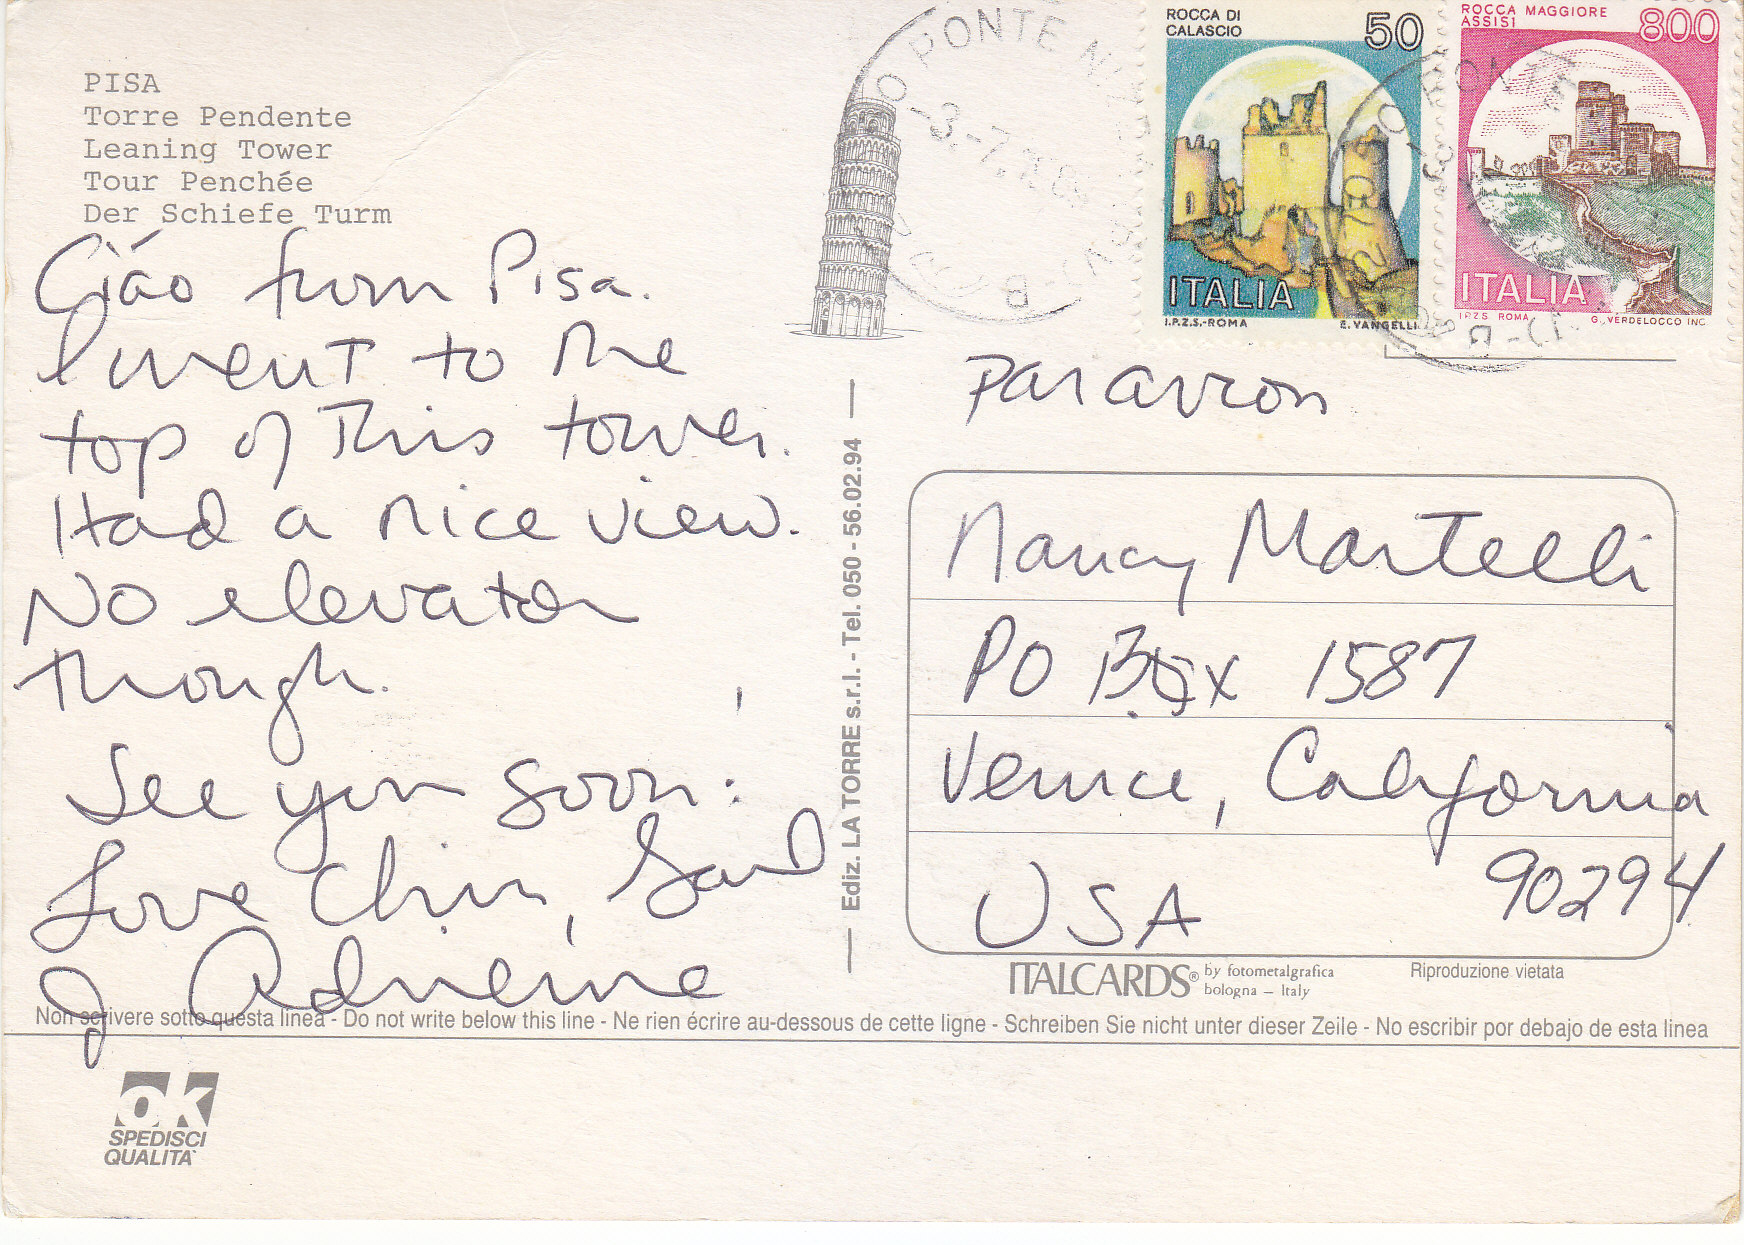 PISA
Torre Pendente
Leaning Tower
Tour Penchée
Der Schiefe Turm
Ciao from Pisa.
I went to the
top of This tower.
Had a nice view.
No elevator
though.
See you soon.
Love Chris,
J. Adrienne
PONTE
-3.-7.
ROCCA DI
CALASCIO
50
ITALIA
I.P.Z.S.-ROMA E. VANGELLI
ROCCA MAGGIORE
ASSISI
800
ITALIA
I.P.Z.S. ROMA G. VERDELOCCO INC.
Par avion
Ediz. LA TORRE s.r.l. - Tel. 050 - 56.02.94
Nancy Martelli
PO Box 1587
Venice, California
90294
USA
ITALCARDS® by fotometalgrafica
bologna – Italy
Riproduzione vietata
Non scrivere sotto questa linea - Do not write below this line - Ne rien écrire au-dessous de cette ligne - Schreiben Sie nicht unter dieser Zeile - No escribir por debajo de esta linea
OK
SPEDISCI
QUALITA'